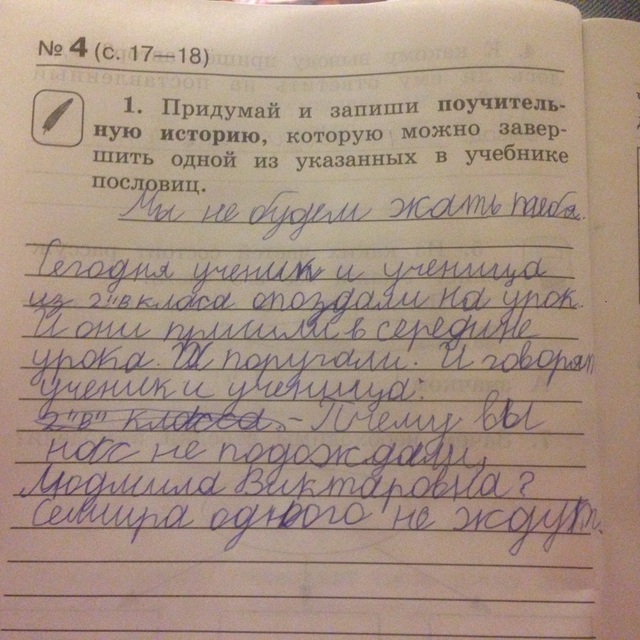 № 4 (с. 17—18)
1. Придумай и запиши поучитель-
ную историю, которую можно завер-
шить одной из указанных в учебнике
пословиц.
Мы не будем ждать тебя.
Сегодня ученик и ученица
из 2"в класа опоздали на урок
И они пришли в середине
урока. Их поругали. И говорят
ученик и ученица:
2"в" класса. - Почему вы
нас не подождали,
Людмила Викторовна?
Семира одного не ждут.